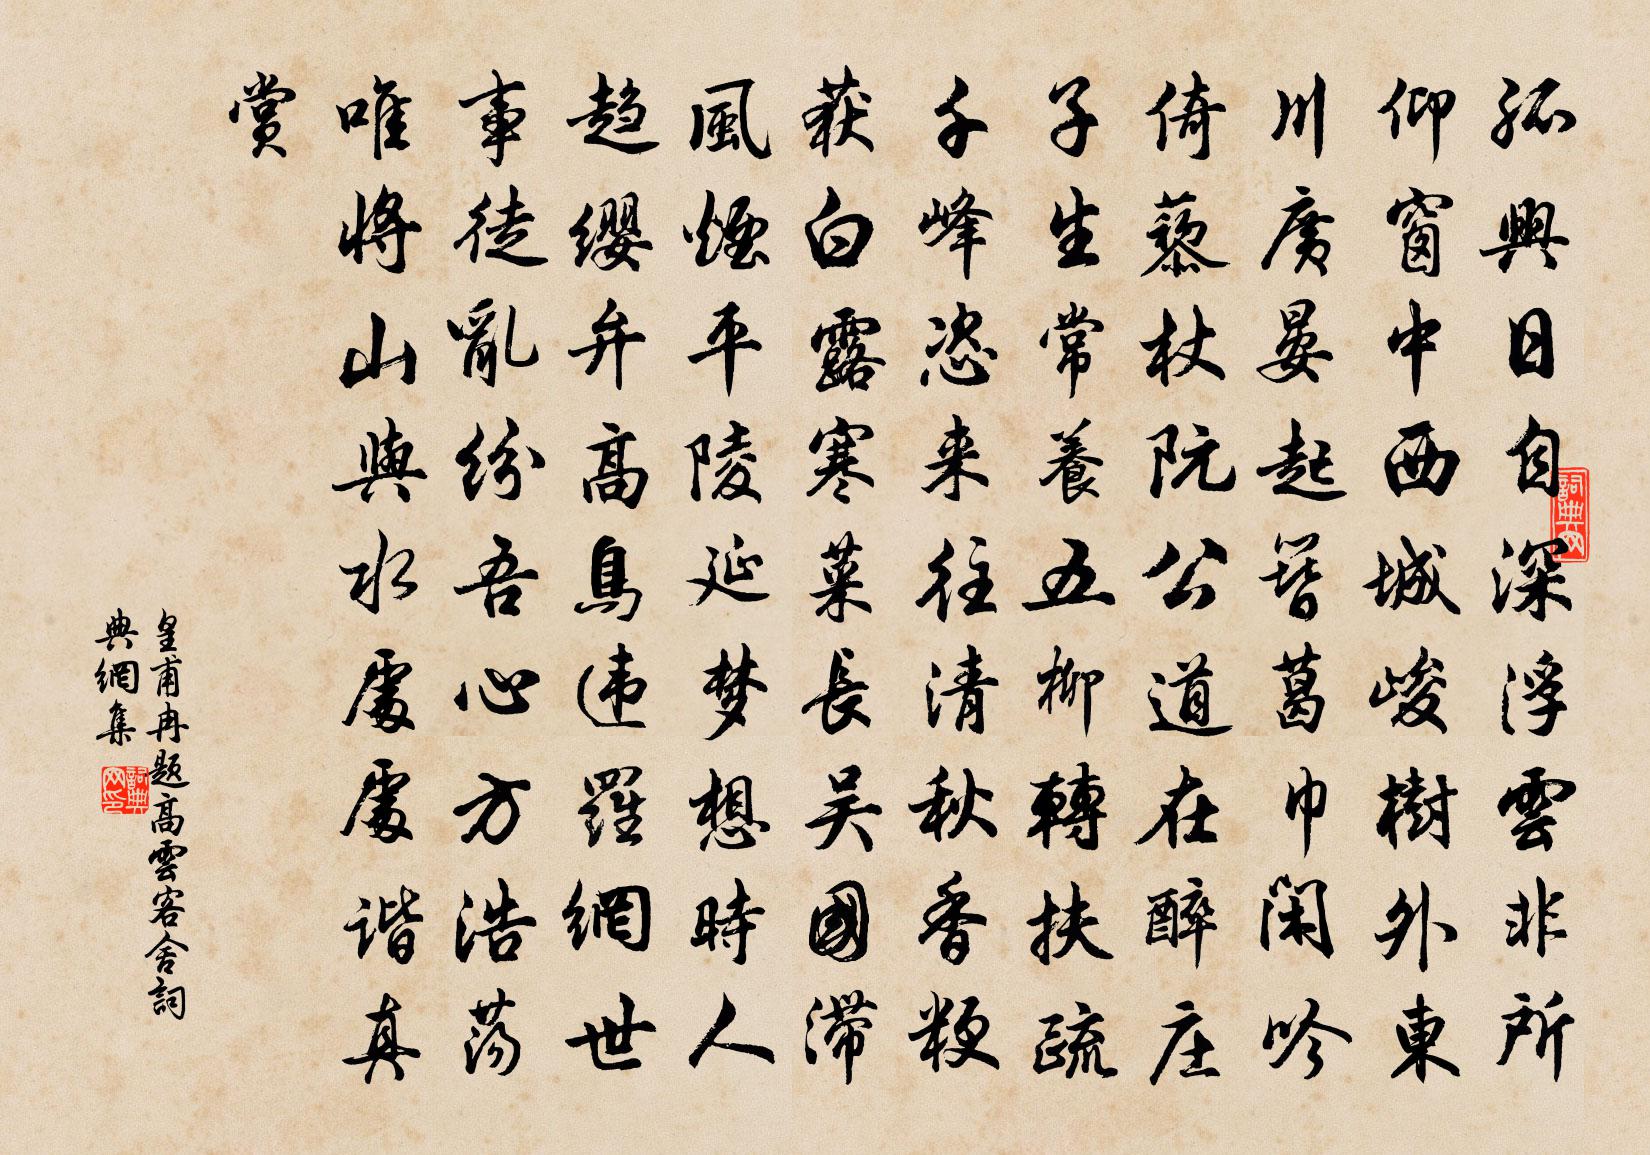 孤興日自深浮雲非所
仰窗中西城峻樹外東
川廣晏起簪葛巾閑吟
倚藜杖阮公道在醉庄
子生常養五柳轉扶疏
千峰恣来往清秋香粳
获白露寒菜長吴國滞
風煙平陵延梦想時人
趋纓弁高鳥违羅網世
事徒亂紛吾心方浩荡
唯將山與水處處谐真
赏
皇甫冉题高雲客舍詞
典網集
詞典网
詞典网印